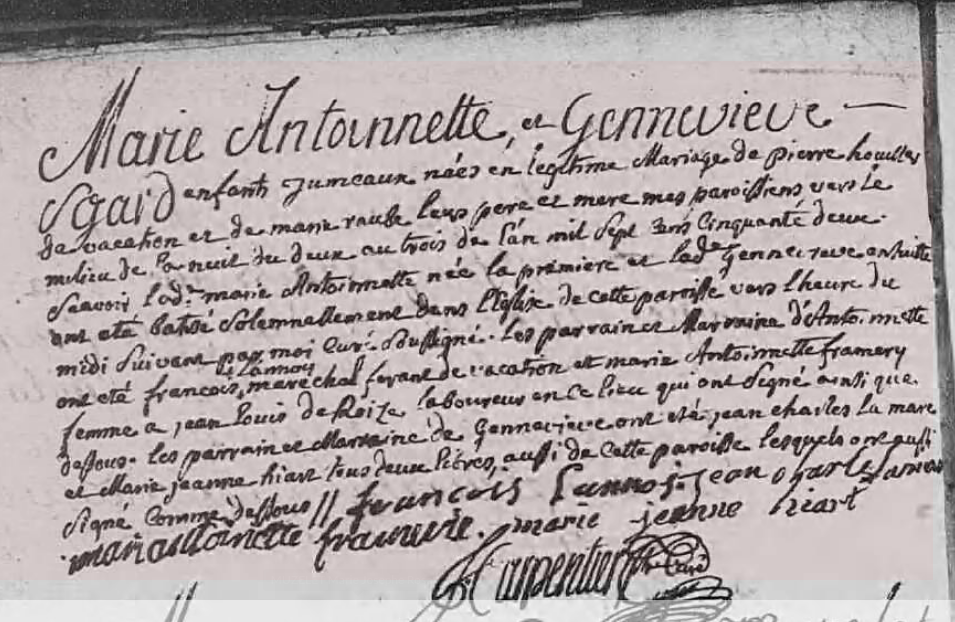 Marie Antoinnette, et Gennevieve
Sgard enfants Jumeaux nées en legitime Mariage de pierre houiller
de vacation et de marie leurs pere et mere mes paroissiens vers le
milieu de la nuit du deux au trois de l'an mil sept cens cinquante deux.
Scavoir lad.e marie Antoinnette née la premiere et lad.e Gennevieve ensuitte
ont eté batisé solemnellement dans l'Eglise de cette paroisse vers l'heure du
midi suivant par moi Curé soussigné. les parrain et Marraine d'Antoinnette
ont eté francois Lannoy marechal ferant de vacation et marie Antoinnette framery
femme a jean Louis laboureur en ce lieu qui ont signé ainsi que
dessous. les parrain et Marraine de Gennevieve ont eté jean charles la mare
et Marie jeanne hiart tous deux libres, aussi de cette paroisse lesquels ont aussi
signé comme dessous // francois Lannoy. jean charle lamare
mari antoinette framerie. marie jeanne hiart
Carpentier Curé